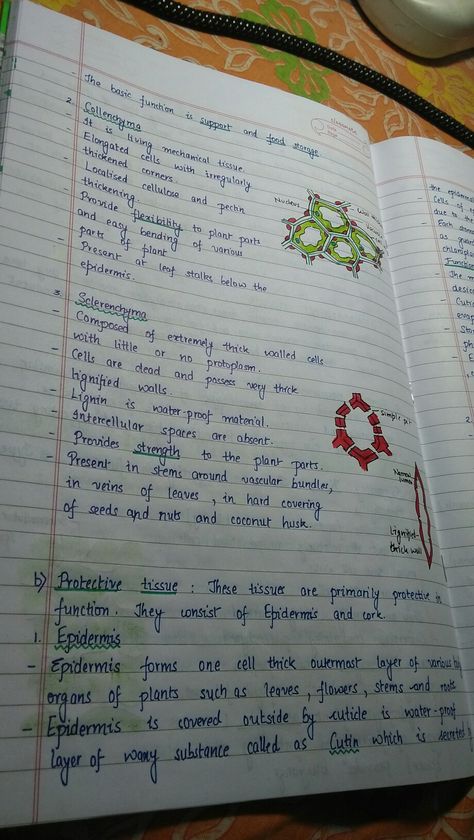 - The basic function is support and food storage.
2. Collenchyma
- It is living mechanical tissue.
- Elongated cells with irregularly
thickened corners.
- Localised cellulose and pectin
thickening.
- Provide flexibility to plant parts
and easy bending of various
parts of plant
- Present at leaf stalks below the
epidermis.
Nucleus
3. Sclerenchyma
- Composed of extremely thick walled cells
with little or no protoplasm.
- Cells are dead and possess very thick
lignified walls.
- Lignin is water-proof material.
- Intercellular spaces are absent.
- Provides strength to the plant parts.
- Present in stems around vascular bundles,
in veins of leaves, in hard covering
of seeds and nuts and coconut husk.
simple pit
Narrow
lumen
Lignified
thick wall
b) Protective tissue : These tissues are primarily protective in
function. They consist of Epidermis and cork.
1. Epidermis
- Epidermis forms one cell thick outermost layer of various
organs of plants such as leaves, flowers, stems and roots
- Epidermis is covered outside by cuticle is water-proof
layer of waxy substance called as Cutin which is secreted
the epidermis
Cells of
due to
Each
Function